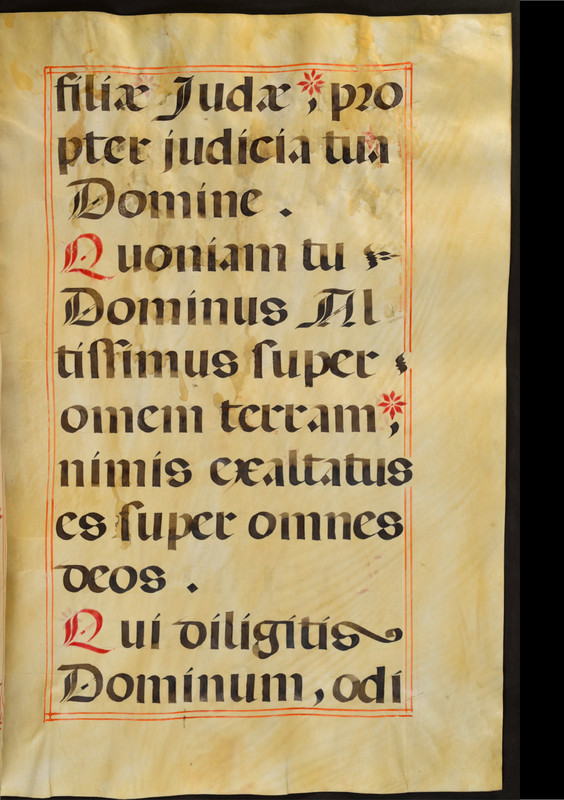 filiæ Judæ *, pro
pter judicia tua
Domine .
Quoniam tu
Dominus Al
tiſſimus ſuper
omem terram *,
nimis exaltatus
es ſuper omnes
deos .
Qui diligitis
Dominum, odi